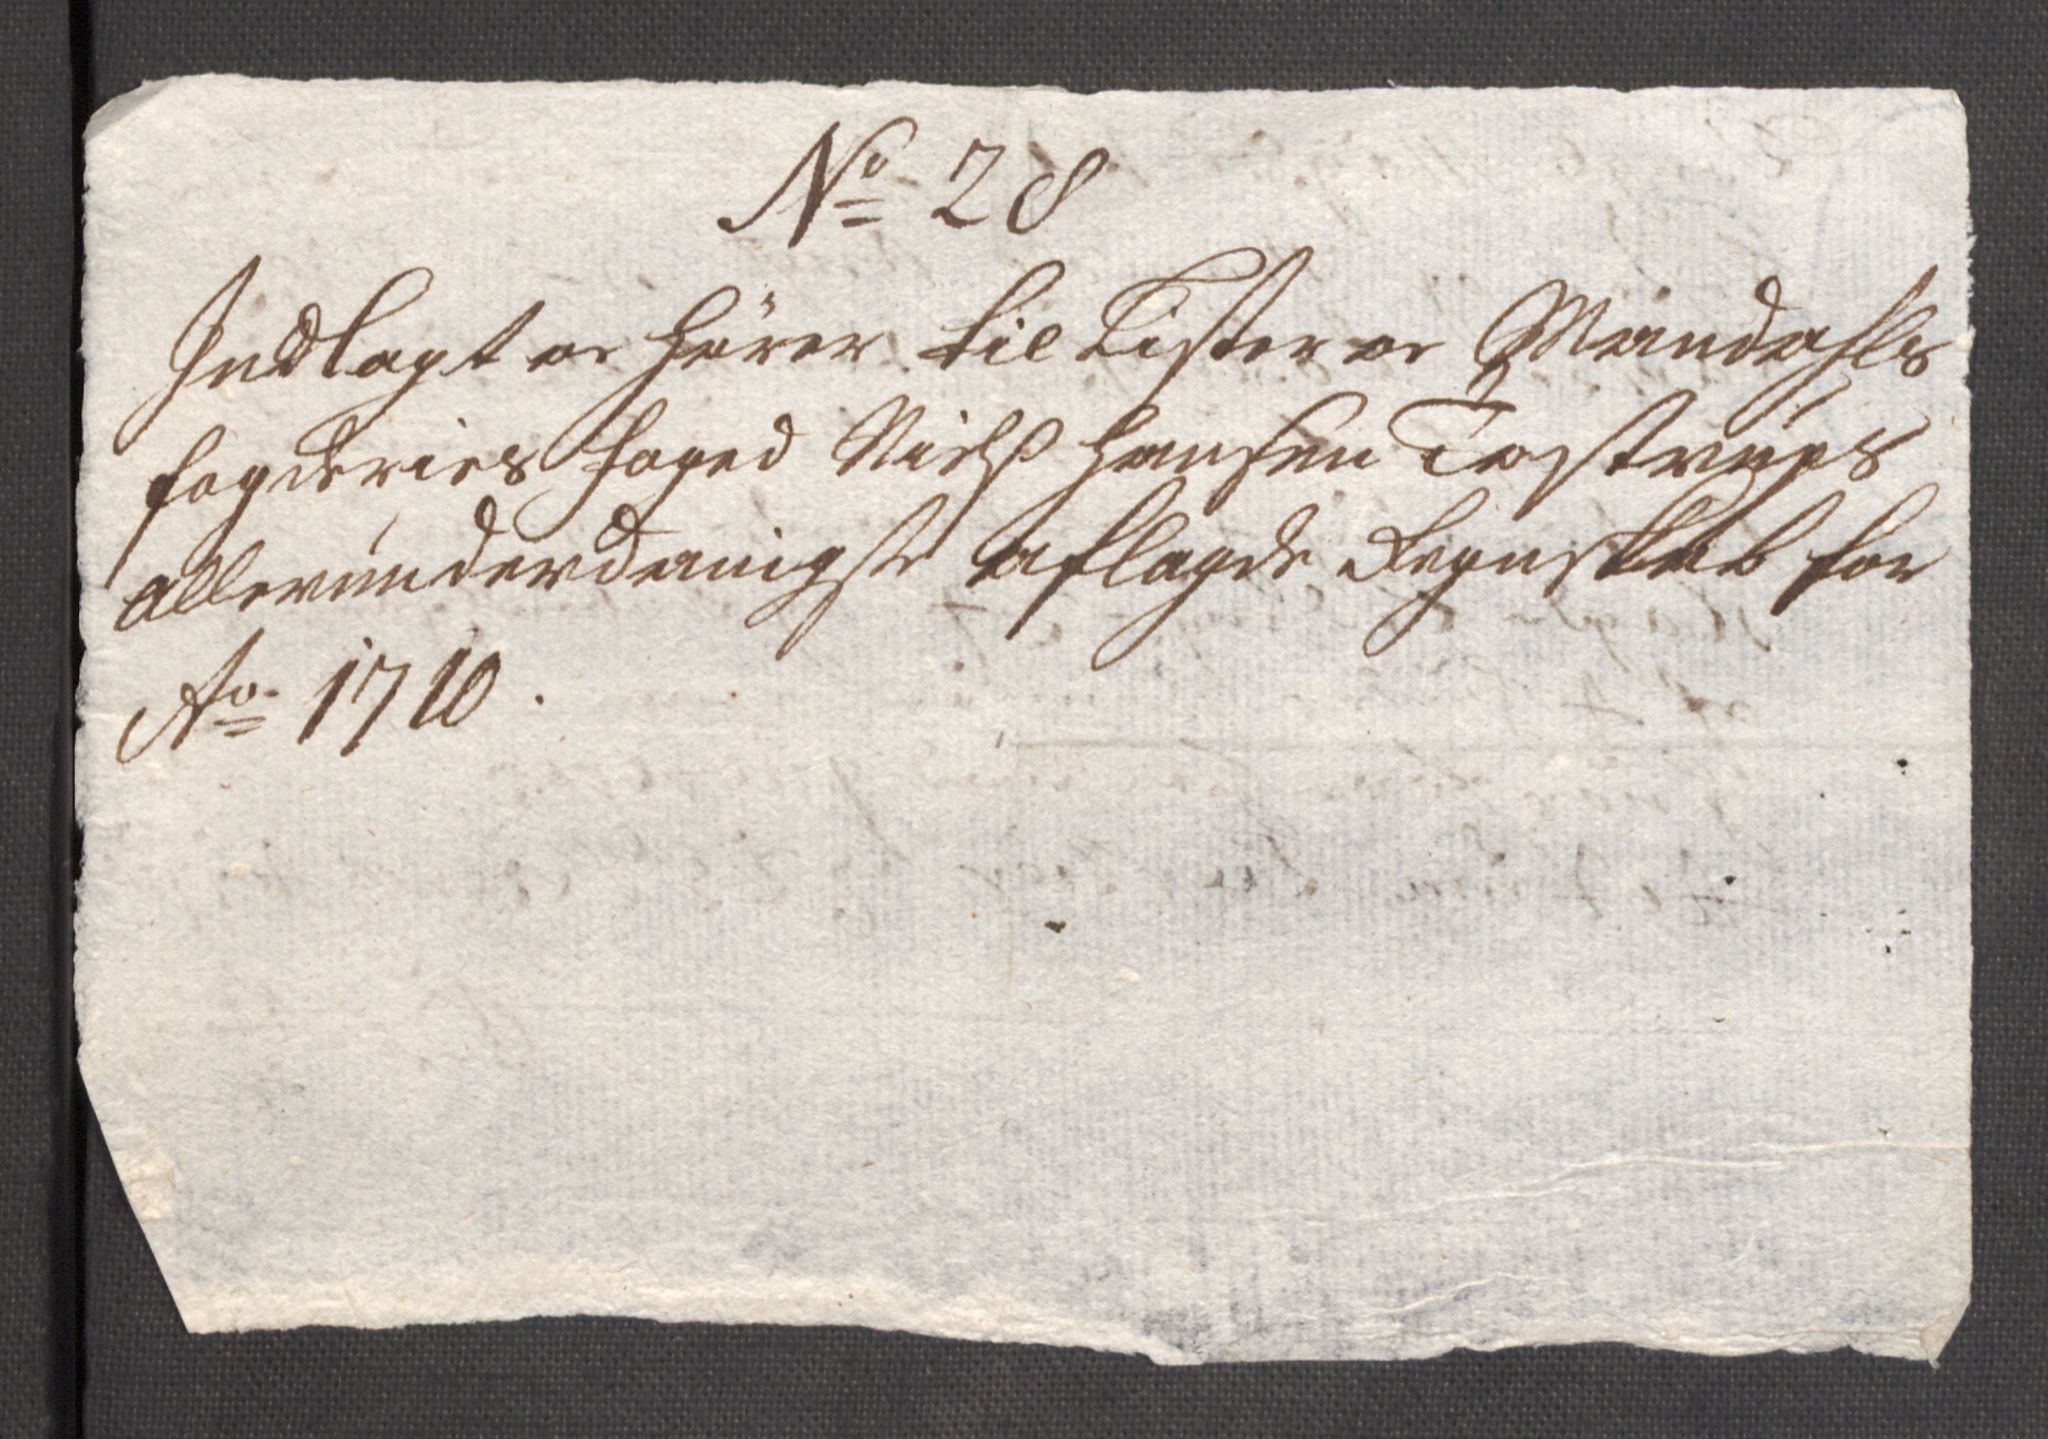 No 28
Indlagt er hörer til Lister oc Mandahls
fogderies foged Niels Hansen Tostrups
allerunderdanigste aflagde Regnskab for
Ao 1710.